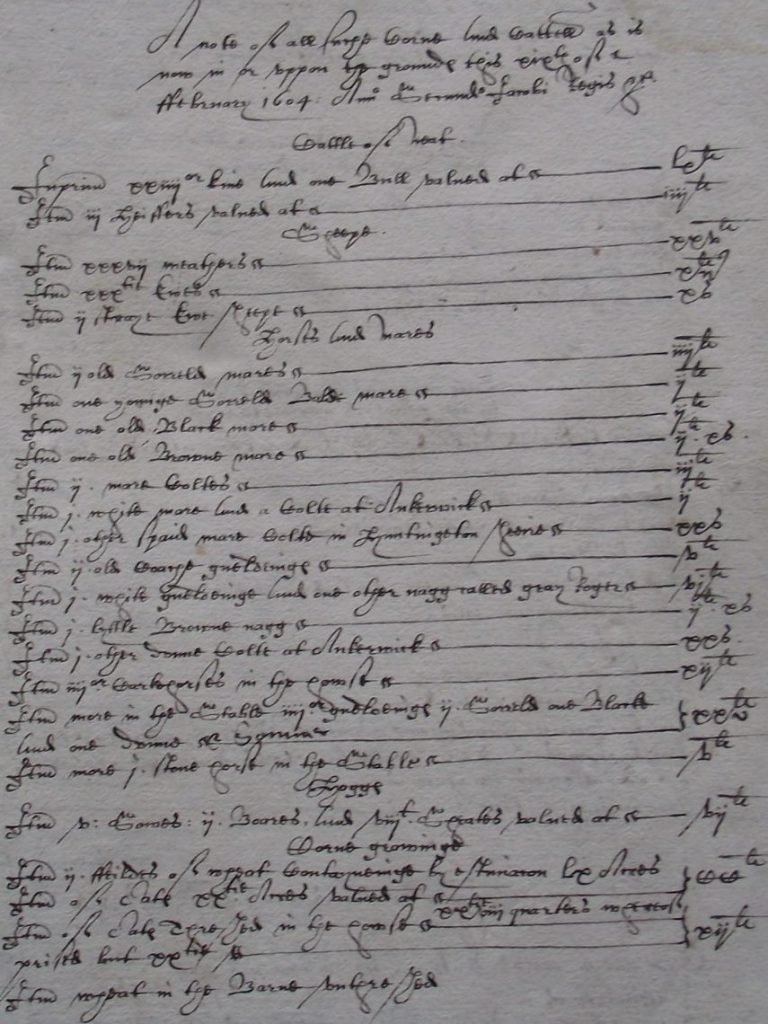 A note of all suche Corne and Cattell as is
now in or uppon the grounde this xixth of
ffebruary 1604. Anno Secundo Jacobi Regis &c.
Cattle of Neat.
Inprimis xxiiiior kine and one Bull valued at lxli
Itm iij Heiffers valued at iiiili
Sheepe.
Itm xxxvij weathers xxvli
Itm xxxtie Ewes
Itm ij straye Ewe sheepe xs
Horses and mares
Itm ij old Sorreld mares iiiili
Itm one yonge Sorreld Balde mare
Itm one old Black mare
Itm one old Browne mare ijli xs.
Itm ij. mare Coltes iiili
Itm j. white mare and a Colte at Ankerwick ijli
Itm j. other spaid mare Colte in Huntington sheire xxs
Itm ij old Coache gueldings vli
Itm j. white gueldinge and one other nagg called gray Roger vjli
Itm j. lyttle Browne nagg ijli xs
Itm j. other donne Colte at Ankerwick xxs.
Itm iiiior Cartehorses in the howse xijli
Itm more in the Stable iiiior gueldings ij. Sorreld one Black
and one donne xxvli
Itm more j. stone horse in the Stable vli
Hoggs
Itm v: Sowes: ij. Boares, and viijt. Sheates valued at vijli
Corne growinge
Itm ij. ffeildes of wheat Contayneinge by estimacon lxx Acres
Itm of Oats xxtie Acres valued at
Itm of Oats Threshed in the howse xxtiiiii quarters whereof
prised but xxtie xijli
Itm wheat in the Barne unthreshed